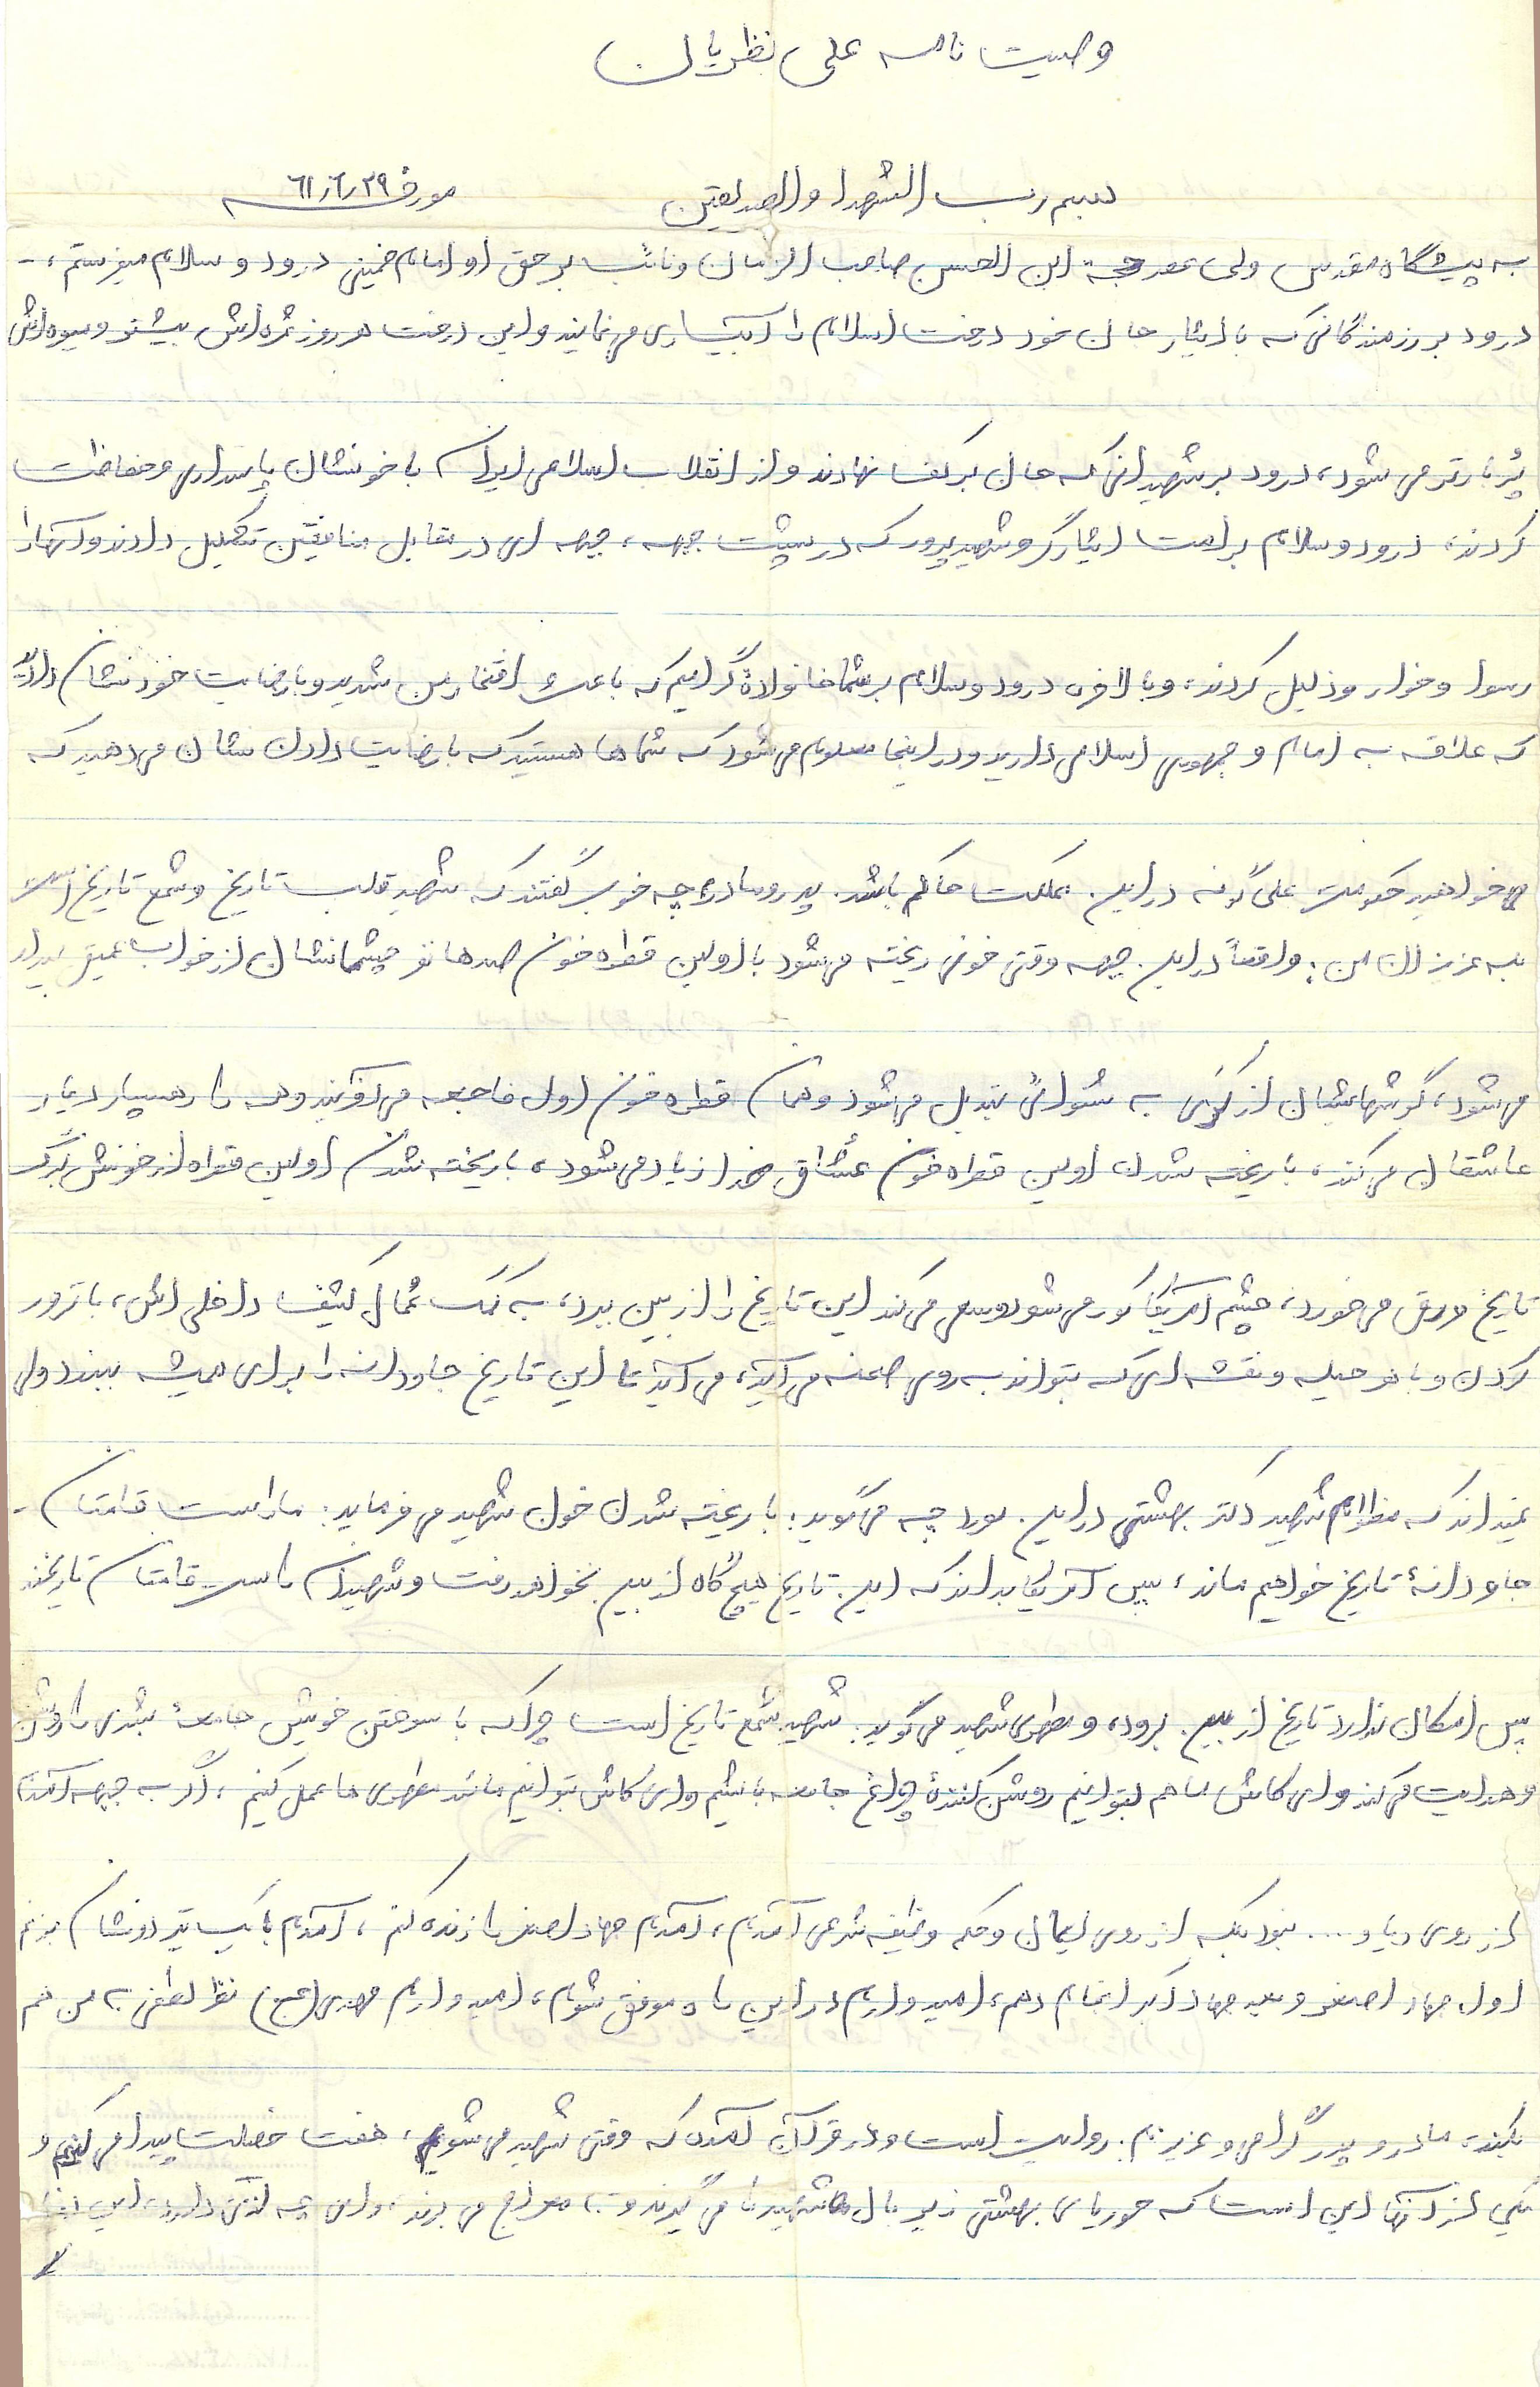 وصیت نامه علی نظریان
بسم رب الشهدا والصدیقین مورخه ۶۱٫۶٫۲۹
به پیشگاه مقدس ولی عصر حجة ابن الحسن صاحب الزمان و نائب بر حق او امام خمینی درود و سلام میفرستم، -
درود بر رزمندگانی که با ایثار جان خود درخت اسلام را آبیاری می نمایند و این درخت هر روز ثمره اش بیشتر و میوه اش
پُربارتر می شود، درود بر شهیدانی که جان بر کف نهادند و از انقلاب اسلامی ایران با خونشان پاسداری و حفاظت
کردند، درود و سلام بر امت ایثارگر و شهیدپرور که در پشت جبهه، جبهه ای در مقابل منافقین تشکیل دادند و آنها را
رسوا و خوار و ذلیل کردند، و بالاخره درود و سلام بر شما خانوادهٔ گرامیم که باعث افتخار من شدید و با رضایت خود نشان دادید
که علاقه به امام و جمهوری اسلامی دارید و در اینجا معلوم می شود که شماها هستید که با رضایت دادن نشان می دهید که
می خواهید حکومت علی گونه در این مملکت حاکم باشد. پدر و مادرم چه خوب گفتند که شهید قلب تاریخ و شمع تاریخ است
بله عزیزان من: واقعاً در این جبهه وقتی خونی ریخته می شود با اولین قطره خون صدها نفر چشمانشان از خواب عمیق بیدار
می شود، گوشهایشان از کَری به شنوائی تبدیل می شود و همان قطره خون اول فاجعه می آفریند و همه را رهسپار دیار
عاشقان می کند، با ریخته شدن اولین قطره خون عشّاق خدا زیاد می شود، با ریخته شدن اولین قطره از خونش برگ
تاریخ ورق می خورد، چشم آمریکا کور می شود و سعی می کند این تاریخ را از بین ببرد، به کمک عُمال کثیف داخلی اش، با ترور
کردن و با هر حیله و نقشه ای که بتواند به روی صحنه می آید، می آید تا این تاریخ جاودانه را برای همیشه ببندد ولی
نمیداند که مظلوم شهید دکتر بهشتی در این مورد چه می گوید: با ریخته شدن خون شهید می فرماید: ما راست قامتان -
جاودانهٔ تاریخ خواهیم ماند، پس آمریکا بداند که این تاریخ هیچ گاه از بین نخواهد رفت و شهیدان راست قامتان تاریخند
پس امکان ندارد تاریخ از بین برود، و مطهری شهید می گوید: شهید شمع تاریخ است چرا که با سوختن خویش جامعهٔ بشری را روشن
و هدایت می کند و ای کاش ما هم بتوانیم روشن کنندهٔ چراغ جامعه باشیم و ای کاش بتوانیم مانند مطهری ها عمل کنیم، اگر به جبهه آمدم
از روی ریا و.... نبود بلکه از روی ایمان و حکم وظیفه شرعی آمدم، آمدم جهاد اصغر را زنده کنم، آمدم با یک تیر دو نشان بزنم
اول جهاد اصغر و بعد جهاد اکبر انجام دهم، امیدوارم در این راه موفق شوم، امیدوارم مهدی (عج) نظر لطفی به من هم
بکند، مادر و پدر گرامی و عزیزم: روایت است و در قرآن آمده که وقتی شهید می شویم، هفت خصلت پیدا می کنیم و
یکی از آنها این است که حوریای بهشتی زیر بال شهید را می گیرند و تا معراج می برند، وای چه لذتی دارد، این